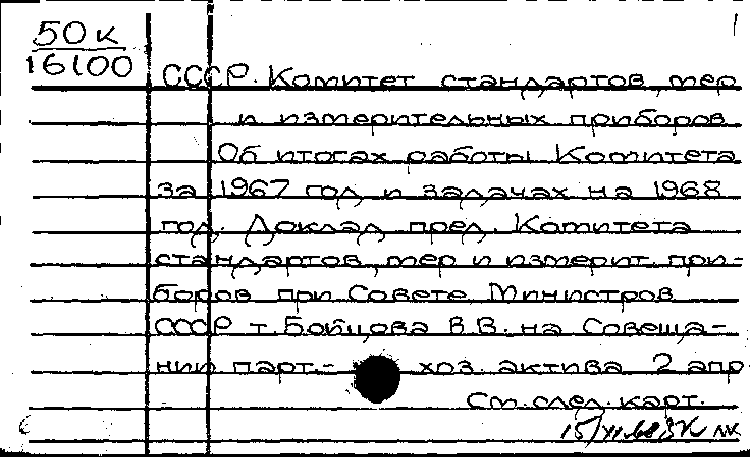 50к
16100
СССР. Комитет стандартов, мер
и измерительных приборов
Об итогах работы Комитета
за 1967 год и задачах на 1968
год. Доклад пред. Комитета
стандартов, мер и измерит. при-
боров при Совете Министров
СССР т. Бойцова В.В. на Совеща-
нии парт.- хоз. актива 2 апр
См. след. карт.